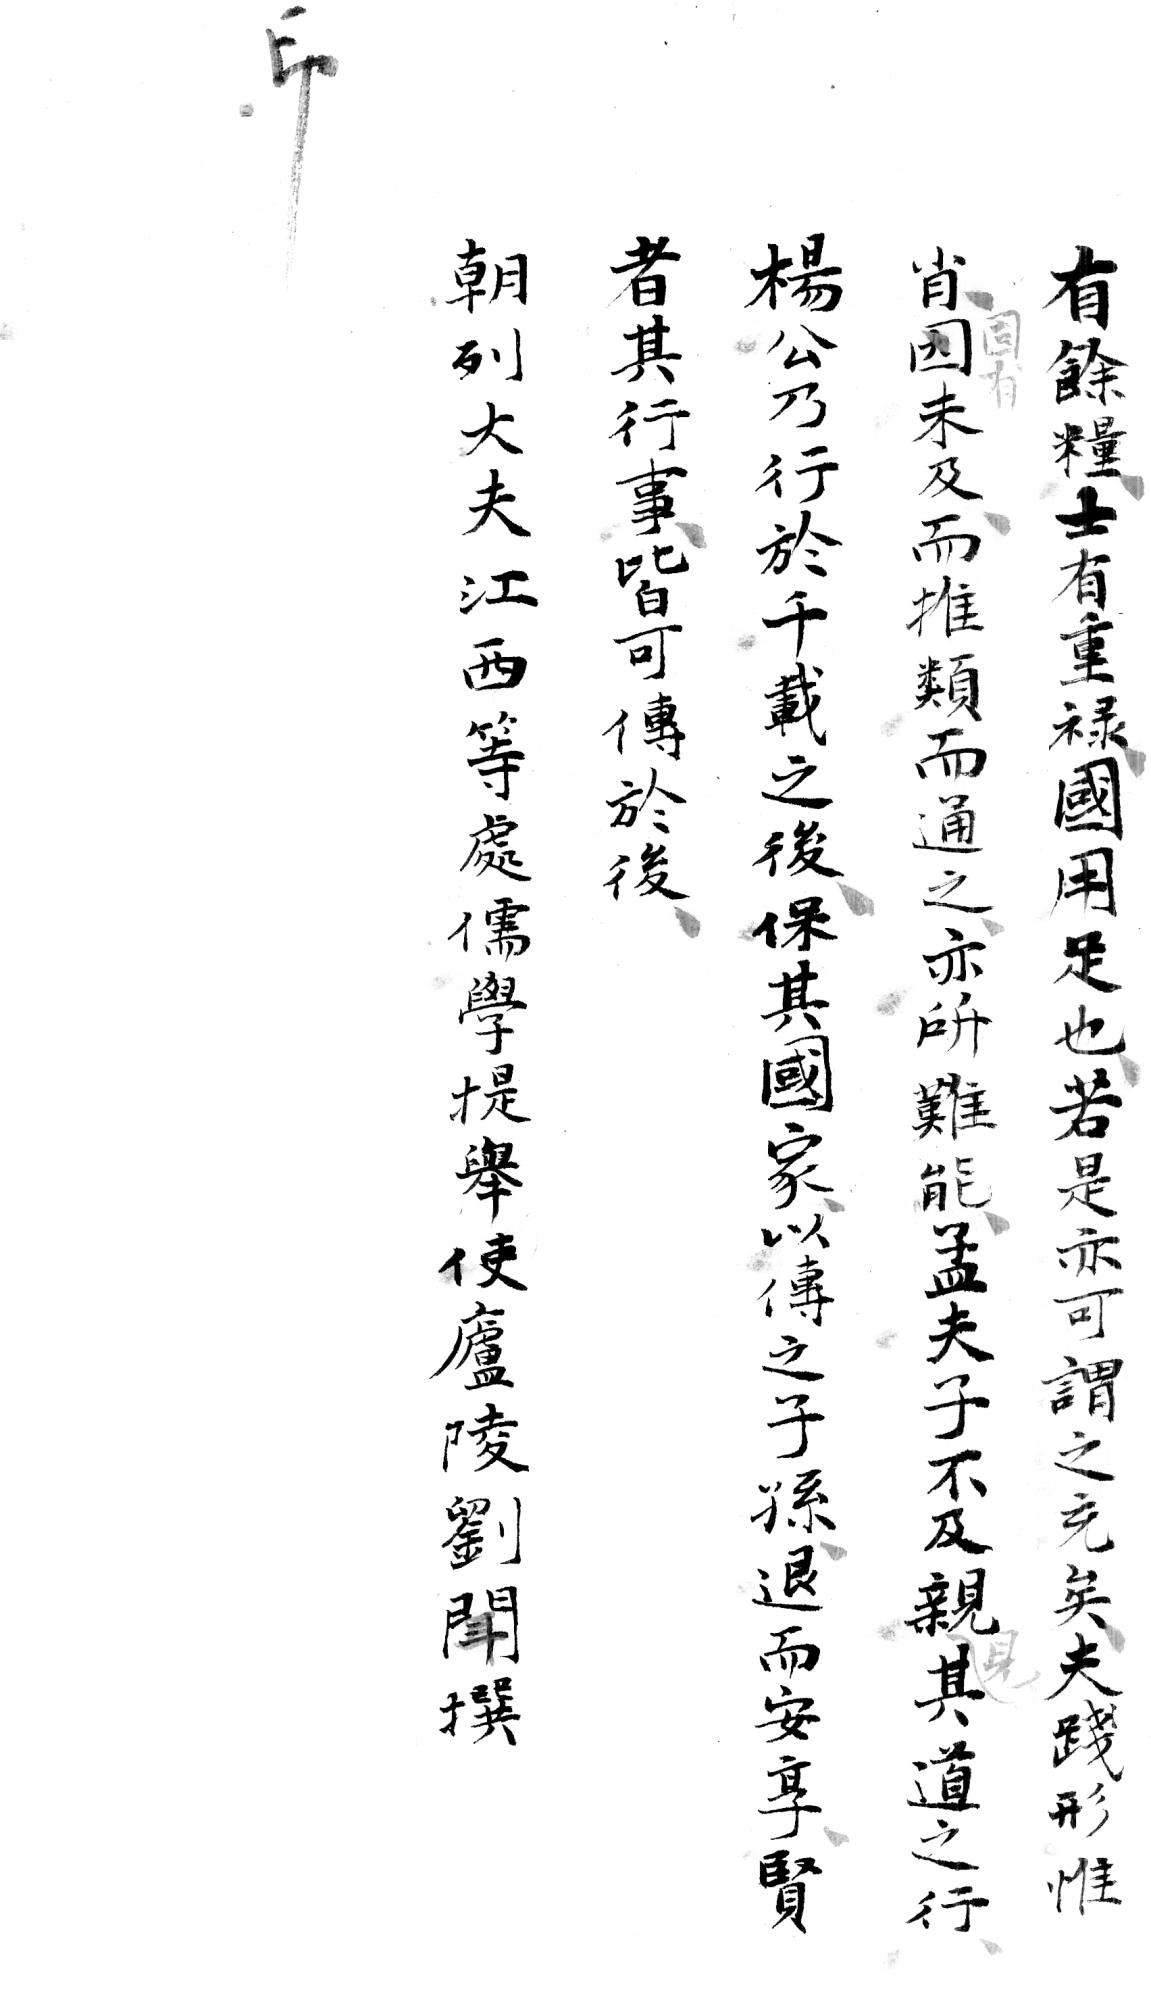 有餘糧士有重禄國用足也若是亦可謂之充矣夫踐形惟
肖因未及而推類而通之亦所難能孟夫子不及親其道之行
固有
見
楊公乃行於千載之後保其國家以傳之子孫退而安享賢
者其行事皆可傳於後
朝列大夫江西等處儒學提舉使廬陵劉聞撰
印